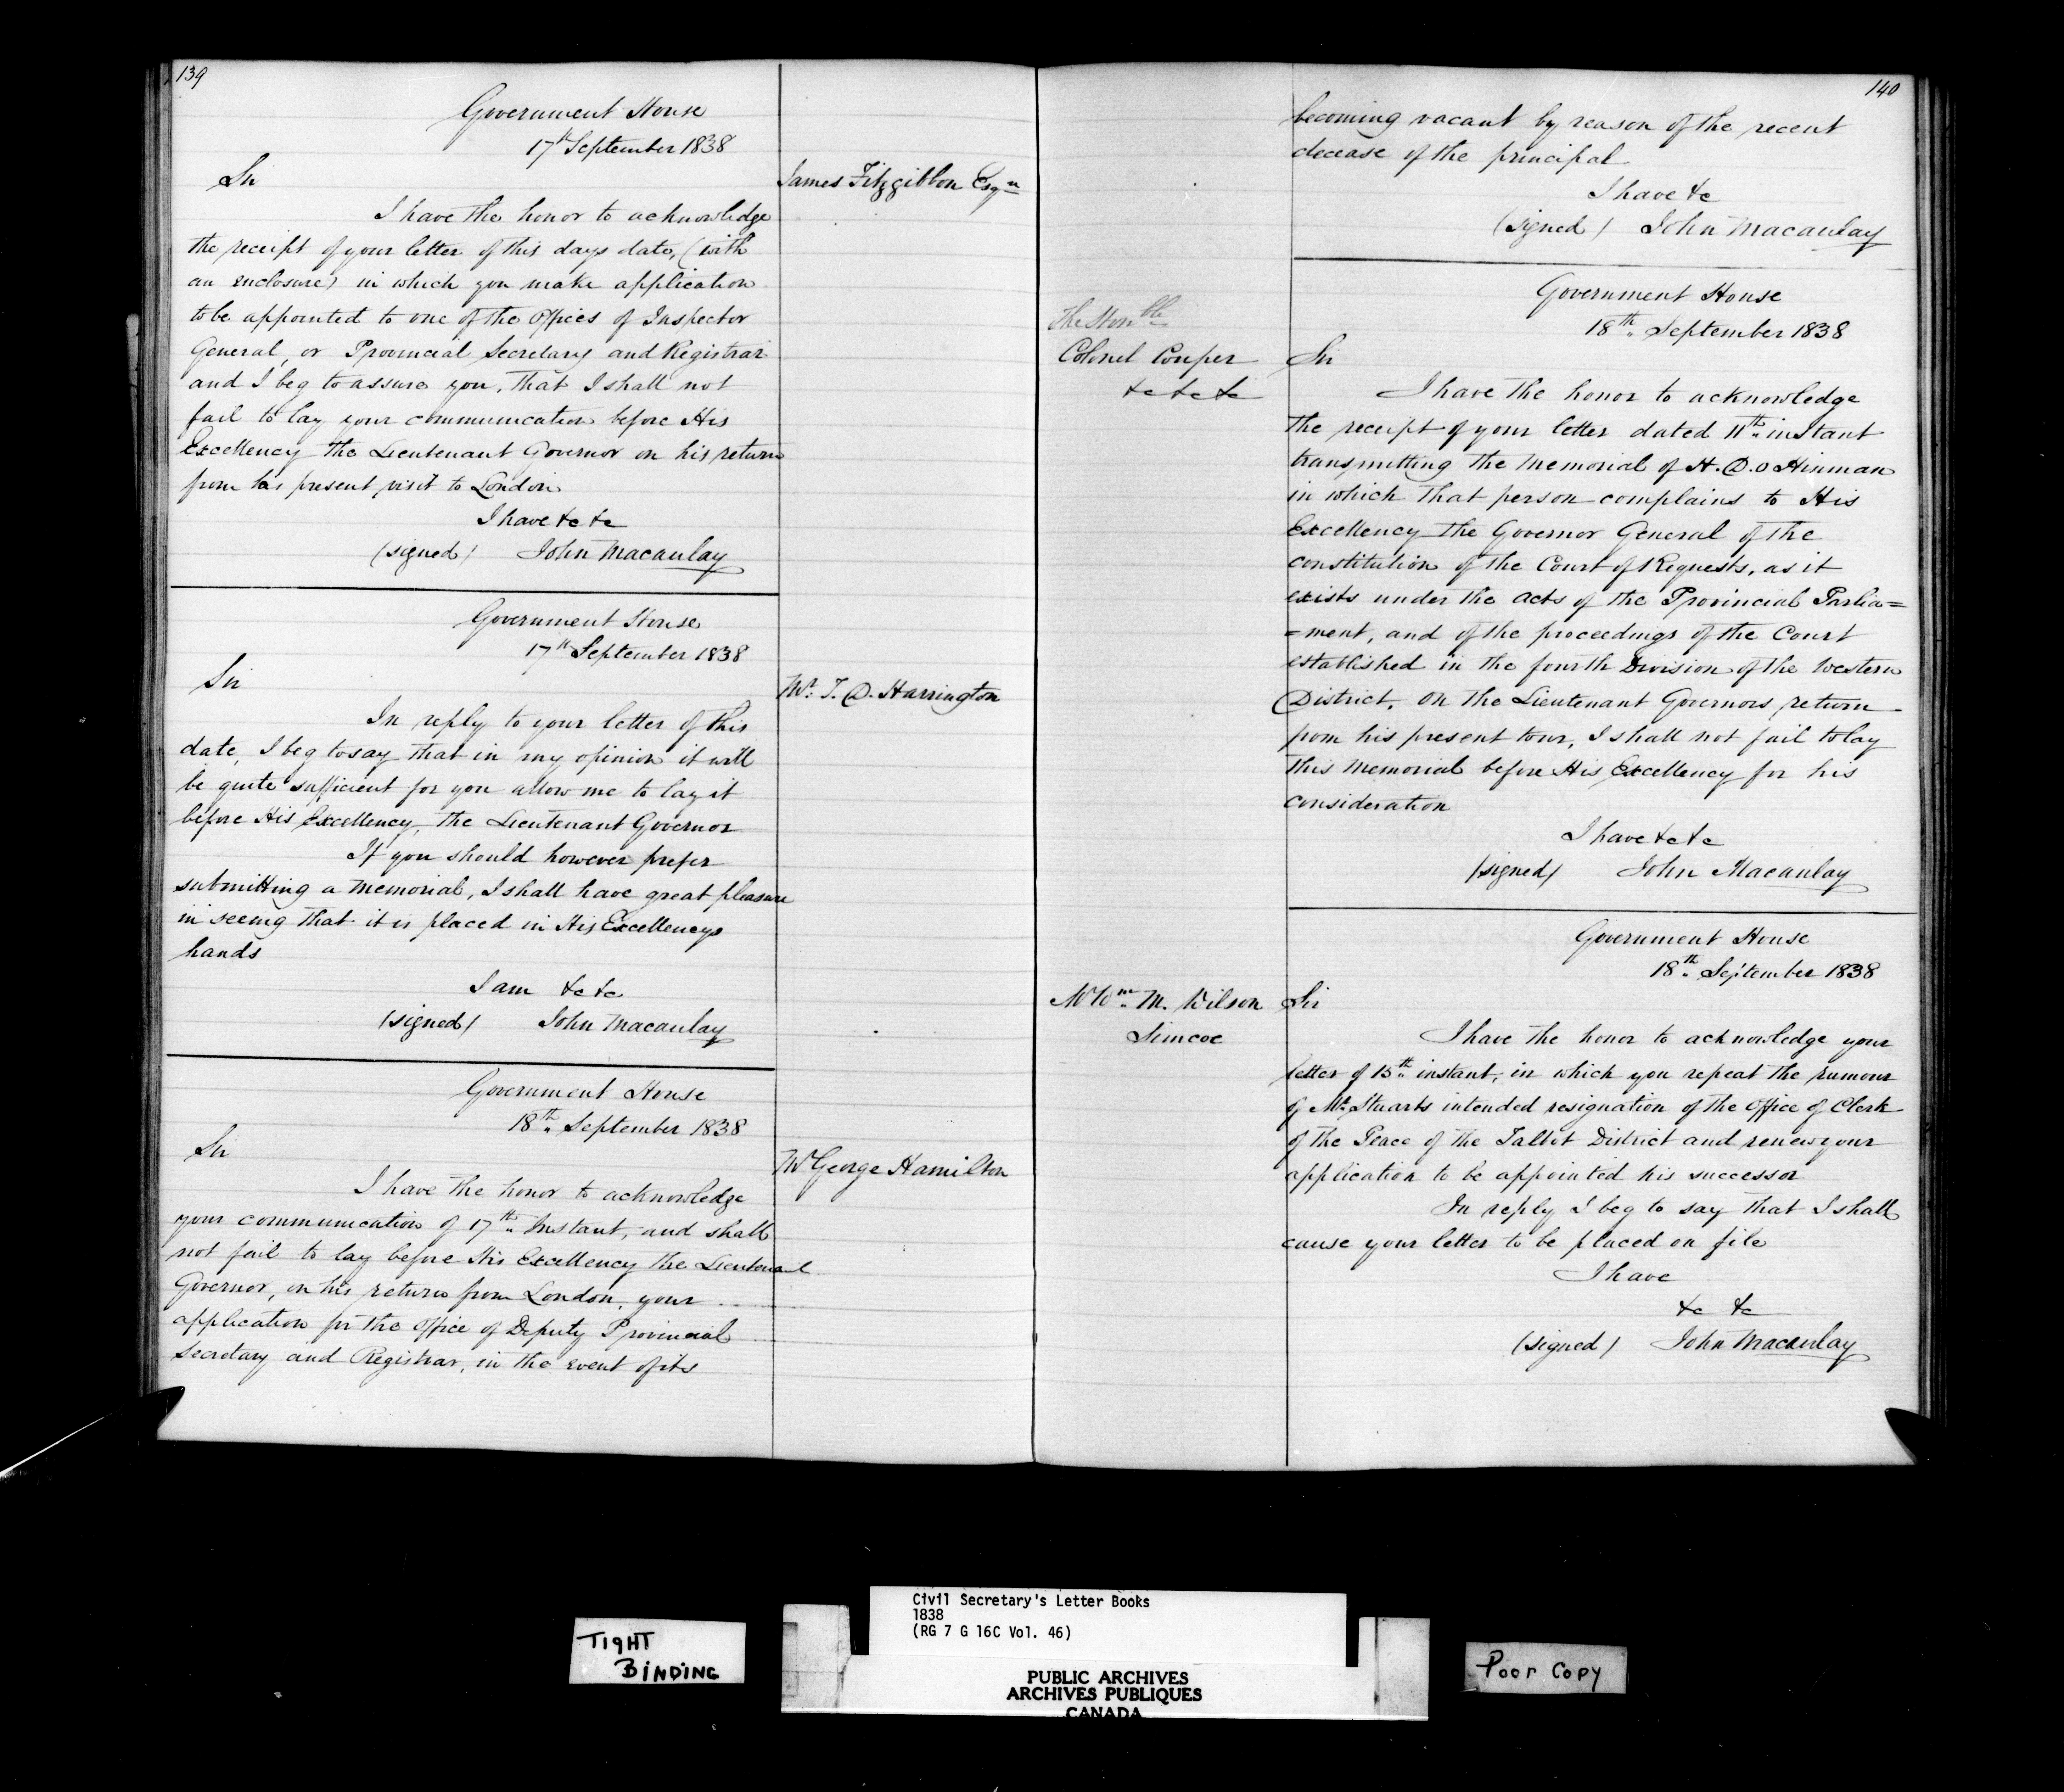 139
Government House
17th September 1838
Sir
James Fitzgibbon Esqre
I have the honor to acknowledge
the receipt of your letter of this days date, (with
an enclosure) in which you make application
to be appointed to one of the Offices of Inspector
General, or Provincial Secretary and Registrar
and I beg to assure you, that I shall not
fail to lay your communication before His
Excellency the Lieutenant Governor on his return
from his present visit to London
I have &c &c
(signed) John Macaulay
Government House
17th September 1838
Sir
Mr. T. D. Harrington
In reply to your letter of this
date, I beg to say that in my opinion it will
be quite sufficient for you allow me to lay it
before His Excellency, the Lieutenant Governor
If you should however prefer
submitting a memorial, I shall have great pleasure
in seeing that it is placed in His Excellencys
hands
I am &c &c
(signed) John Macaulay
Government House
18th September 1838
Sir
Mr George Hamilton
I have the honor to acknowledge
your communication of 17th Instant, and shall
not fail to lay before His Excellency the Lieutenant
Governor, on his return from London, your
application for the Office of Deputy Provincial
Secretary and Registrar, in the event of its
140
becoming vacant by reason of the recent
decease of the principal
I have &c
(signed) John Macaulay
Government House
18th September 1838
The Honble
Colonel Couper
&c &c &c
Sir
I have the honor to acknowledge
the receipt of your letter dated 11th instant
transmitting the Memorial of H. D. O Hinman
in which that person complains to His
Excellency the Governor General of the
constitution of the Court of Requests, as it
exists under the acts of the Provincial Parlia=
=ment, and of the proceedings of the Court
established in the fourth Division of the Western
District. On the Lieutenant Governors return
from his present tour, I shall not fail to lay
this Memorial before His Excellency for his
consideration
I have &c &c
(signed) John Macaulay
Government House
18th September 1838
Mr Wm M. Wilson
Simcoe
Sir
I have the honor to acknowledge your
letter of 15th instant, in which you repeat the rumour
of Mr Stuarts intended resignation of the Office of Clerk
of the Peace of the Talbot District and renew your
application to be appointed his successor
In reply I beg to say that I shall
cause your letter to be placed on file
I have
&c &c
(signed) John Macaulay
TIGHT
BINDING
Civil Secretary's Letter Books
1838
(RG 7 G 16C Vol. 46)
PUBLIC ARCHIVES
ARCHIVES PUBLIQUES
CANADA
Poor Copy